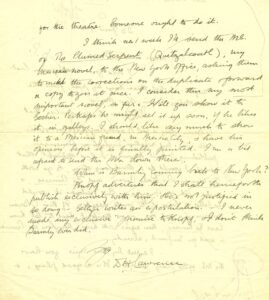 for the theatre. Someone ought to do it.
I think next week I'll send the MS.
of The Plumed Serpent (Quetzalcoatl), my
Mexican novel, to the New York office, asking them
to make the corrections on the duplicate & forward
a copy to you at once. I consider this my most
important novel, so far. Will you show it to
Secker. Perhaps he might set it up soon, if he likes
it, in galleys. I should like very much to show
it to a Mexican friend, in Mexico, & have his
opinion, before it is finally printed. I'm a bit
afraid to send the MS. down there.
When is Barmby coming back to New York?
Knopf advertises that I shall henceforth
publish exclusively with him. He's not justified in
so doing. Seltzer writes an expostulation. I never
made any "exclusive" promise to Knopf. & I don't think
Barmby ever did.
D. H. Lawrence